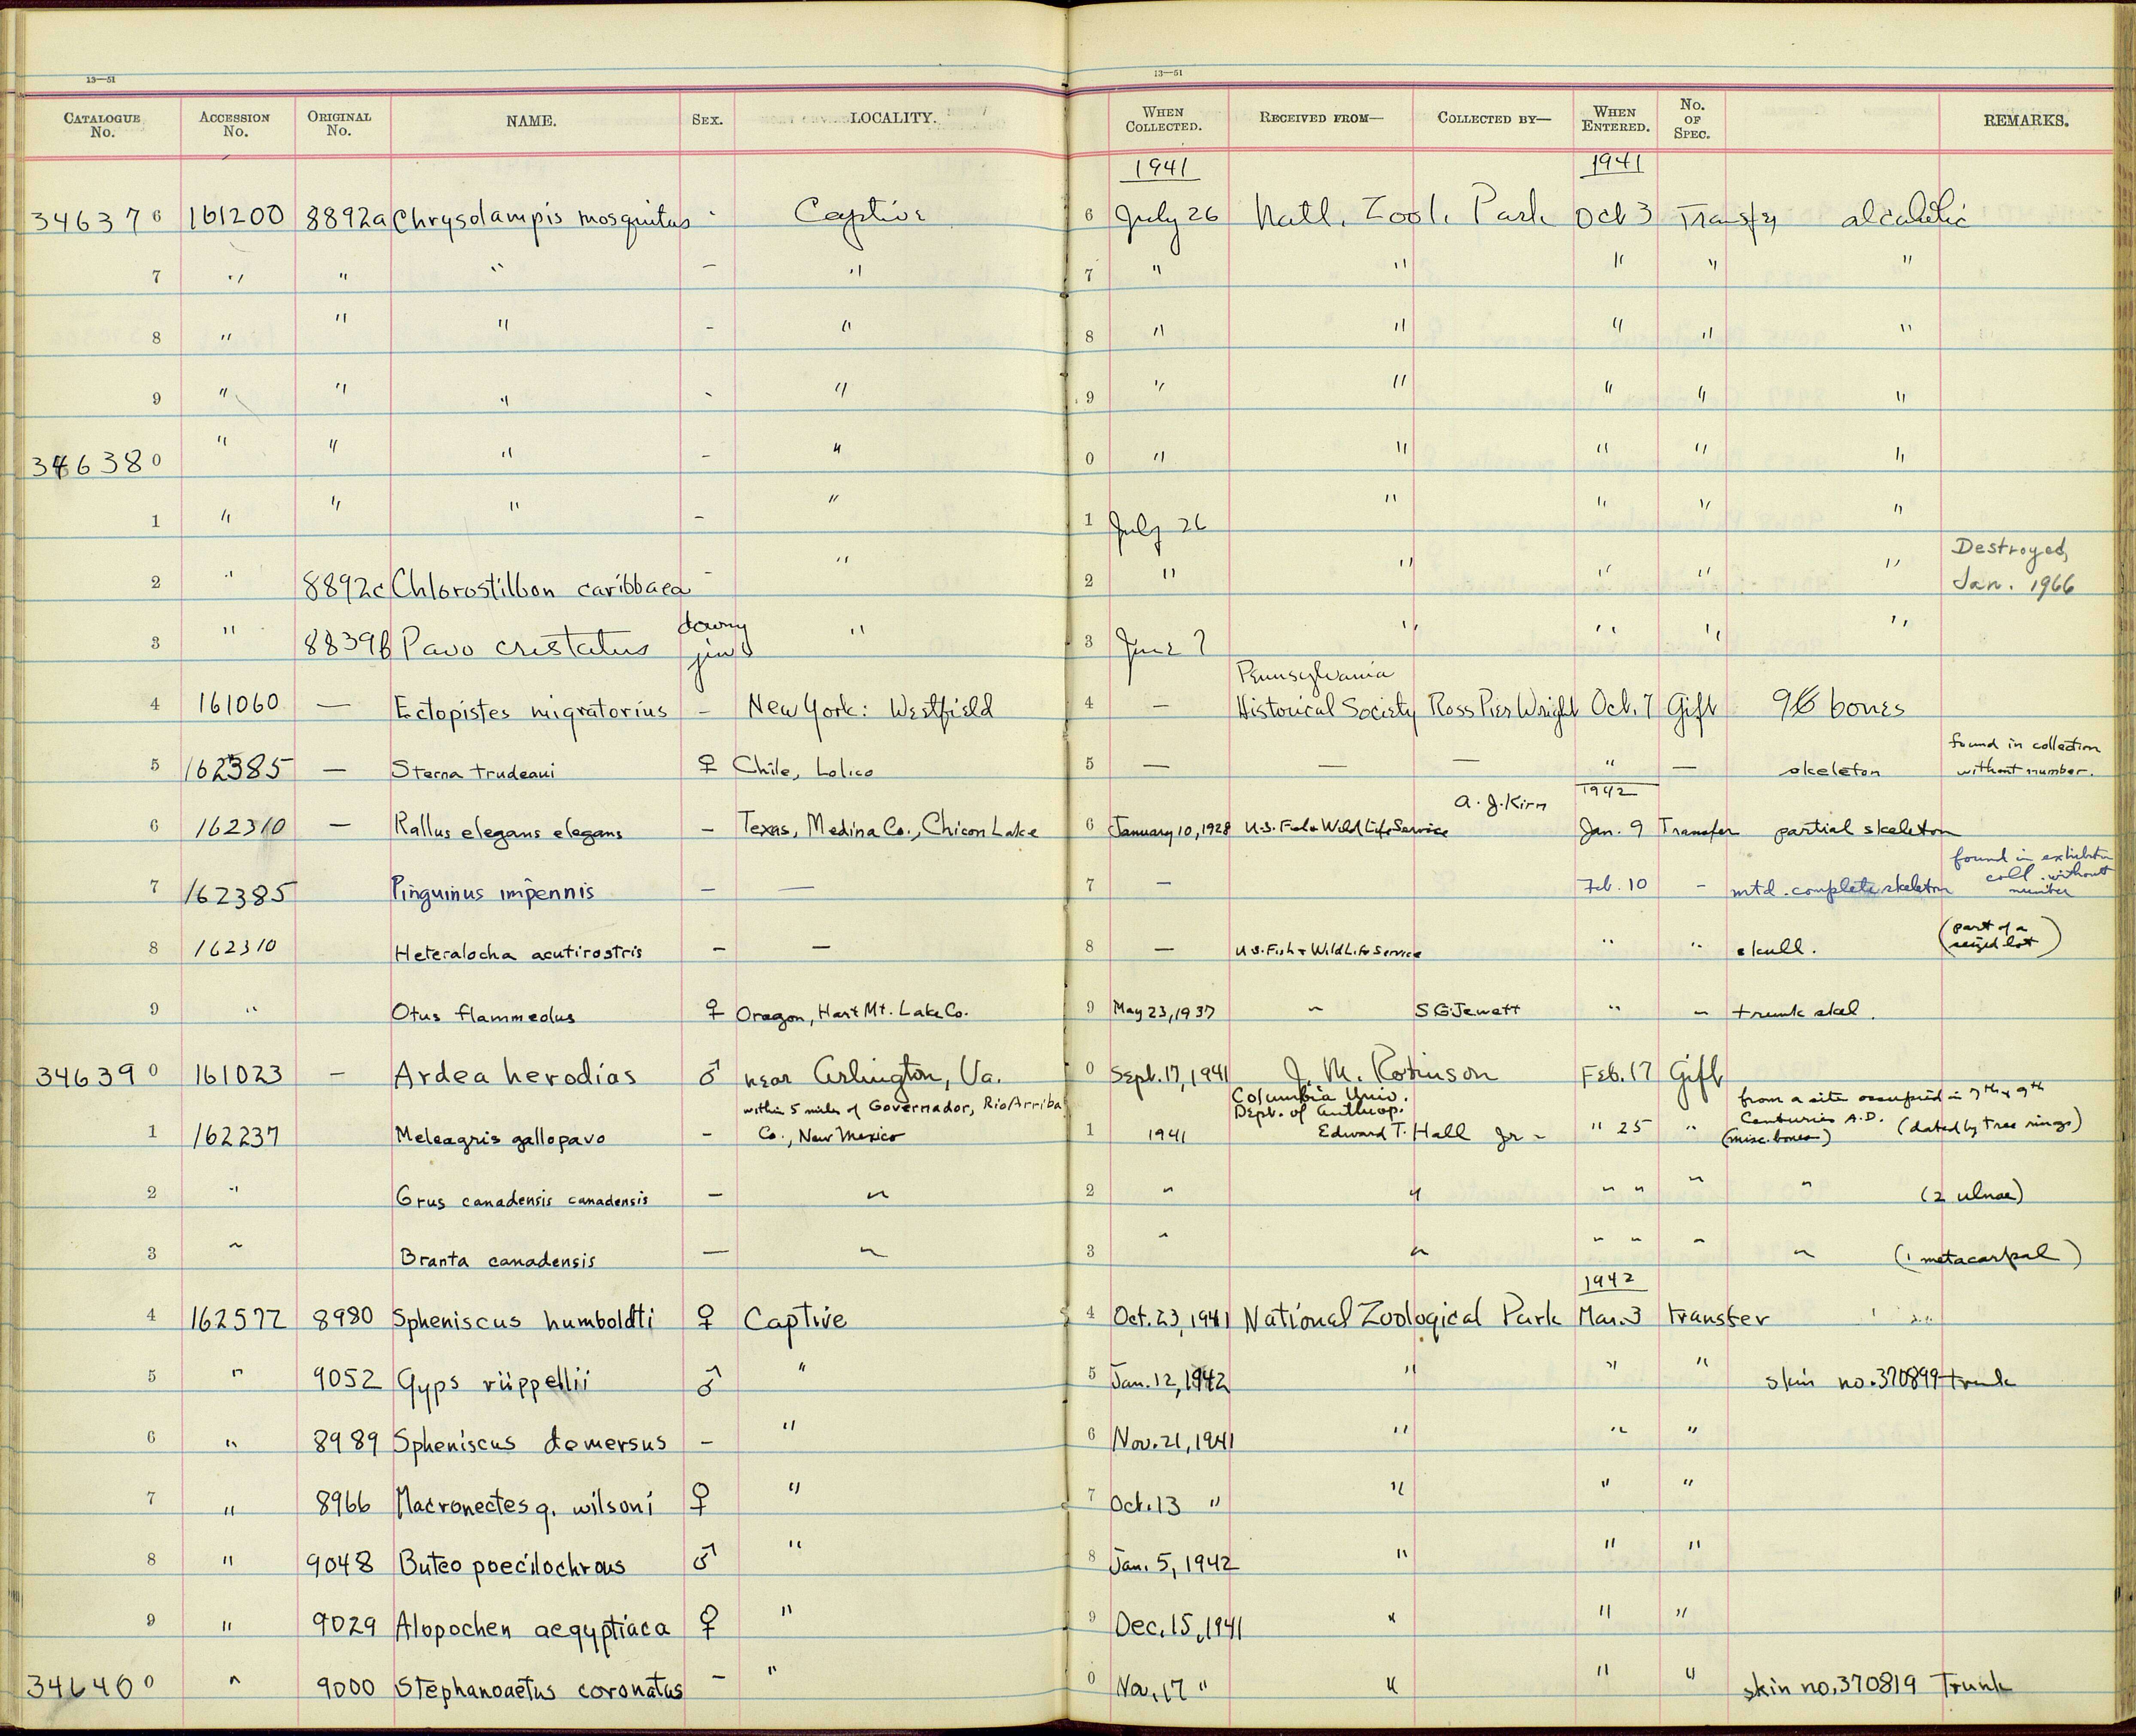 13—51 13—51
CATALOGUE No. ACCESSION No. ORIGINAL No. NAME. SEX. LOCALITY. WHEN COLLECTED. RECEIVED FROM— COLLECTED BY— WHEN ENTERED. No. OF SPEC. REMARKS.
1941 1941
346376 161200 8892a Chrysolampis mosquitus - Captive 6 July 26 Natl. Zool. Park Oct 3 Transfer alcoholic
7 " " " — " 7 " " " " "
8 " " " - " 8 " " " " "
9 " " " - " 9 " " " " "
346380 " " " - " 0 " " " " "
1 " " " - " 1 July 26 " " " "
2 " 8892c Chlorostilbon caribbaea - " 2 " " " " " Destroyed, Jan. 1966
3 " 8839b Pavo cristatus downy juv " 3 June 7 " " " "
4 161060 — Ectopistes migratorius - New York: Westfield 4 — Pennsylvania Historical Society Ross Pier Wright Oct. 7 Gift 96 bones
5 162385 — Sterna trudeaui ♀ Chile, Lolico 5 — — — " — skeleton found in collection without number.
1942
6 162310 — Rallus elegans elegans - Texas, Medina Co., Chicon Lake 6 January 10, 1928 U.S. Fish & Wild Life Service A. J. Kirn Jan. 9 Transfer partial skeleton
7 162385 Pinguinus impennis — — 7 — Feb. 10 - mtd. complete skeleton found in exhibition coll. without number
8 162310 Heteralocha acutirostris — — 8 — U.S. Fish & Wild Life Service " " skull. (part of a seized lot)
9 " Otus flammeolus ♀ Oregon, Hart Mt. Lake Co. 9 May 23, 1937 " S G Jewett " " trunk skel.
346390 161023 - Ardea herodias ♂ near Arlington, Va. 0 Sept. 17, 1941 J. M. Robinson Feb. 17 Gift
1 162237 Meleagris gallopavo - within 5 miles of Governador, Rio Arriba Co., New Mexico 1 1941 Columbia Univ. Dept. of Anthrop. Edward T. Hall Jr - " 25 " from a site occupied in 7th & 9th Centuries A.D. (dated by tree rings) (misc. bones)
2 " Grus canadensis canadensis — " 2 " " " " " " (2 ulnae)
3 " Branta canadensis — " 3 " " " " " " (1 metacarpal)
1942
4 162572 8980 Spheniscus humboldti ♀ Captive 4 Oct. 23, 1941 National Zoological Park Mar. 3 Transfer
5 " 9052 Gyps rüppellii ♂ " 5 Jan. 12, 1942 " " " skin no. 370899 trunk
6 " 8989 Spheniscus demersus - " 6 Nov. 21, 1941 " " "
7 " 8966 Macronectes g. wilsoni ♀ " 7 Oct. 13 " " " "
8 " 9048 Buteo poecilochrous ♂ " 8 Jan. 5, 1942 " " "
9 " 9029 Alopochen aegyptiaca ♀ " 9 Dec. 15, 1941 " " "
346400 " 9000 Stephanoaetus coronatus - " 0 Nov. 17 " " " " skin no. 370819 Trunk